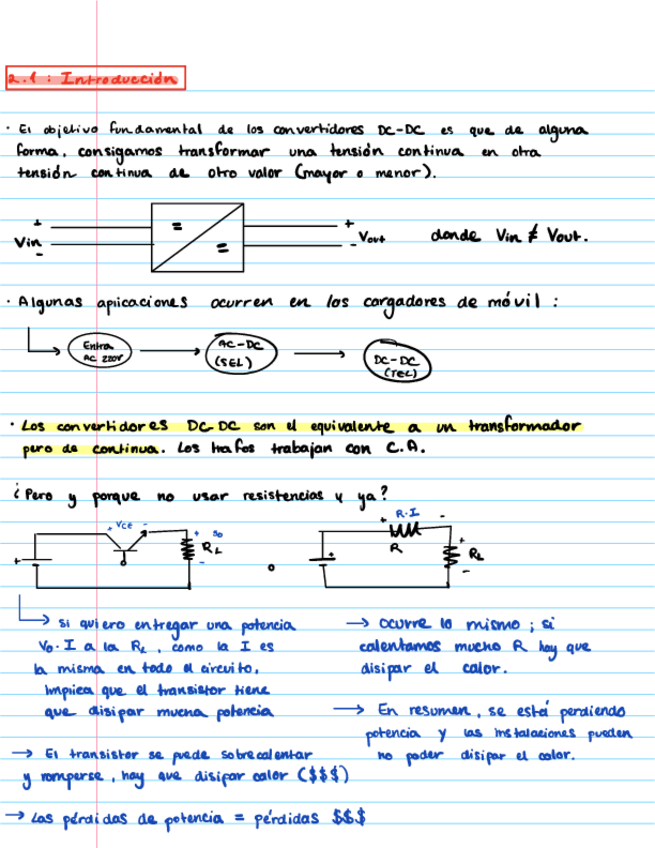 2.1: Introducción
· El objetivo fundamental de los convertidores DC-DC es que de alguna
forma, consigamos transformar una tensión continua en otra
tensión continua de otro valor (mayor o menor).
+
Vin
-
=
=
+
Vout
-
donde Vin ≠ Vout.
· Algunas aplicaciones ocurren en los cargadores de móvil:
Entra
AC 220V
AC-DC
(SEL)
DC-DC
(TEL)
· Los convertidores DC-DC son el equivalente a un transformador
pero de continua. Los trafos trabajan con C.A.
¿Pero y porque no usar resistencias y ya?
+ Vce -
+
-
RL
+
o
R·I
+ -
R
+
+
-
RL
→ si quiero entregar una potencia
Vo·I a la RL, como la I es
la misma en todo el circuito,
implica que el transistor tiene
que disipar mucha potencia
→ El transistor se puede sobrecalentar
y romperse, hay que disipar calor ($$$)
→ Las pérdidas de potencia = pérdidas $$$
→ Ocurre lo mismo; si
calentamos mucho R hay que
disipar el calor.
→ En resumen, se está perdiendo
potencia y las instalaciones pueden
no poder disipar el calor.